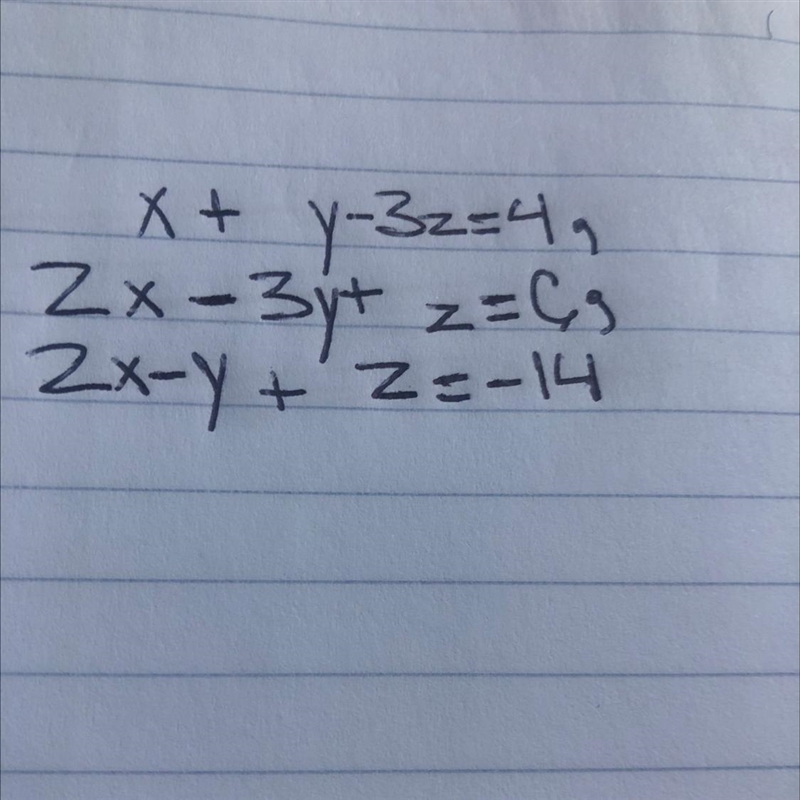 x + y-3z=4,
2x - 3y+ z=6,
2x-y + z=-14